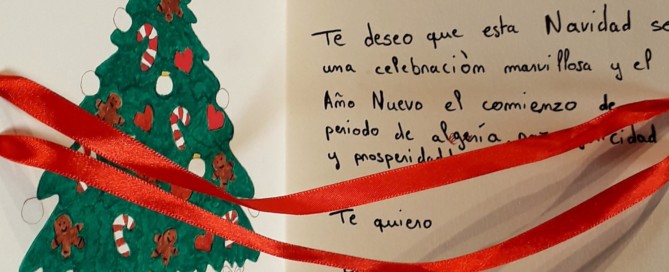 Te deseo que esta Navidad se
una celebraciòn marvillosa y el
Año Nuevo el comienzo de
periodo de algería
y prosperidad
Te quiero